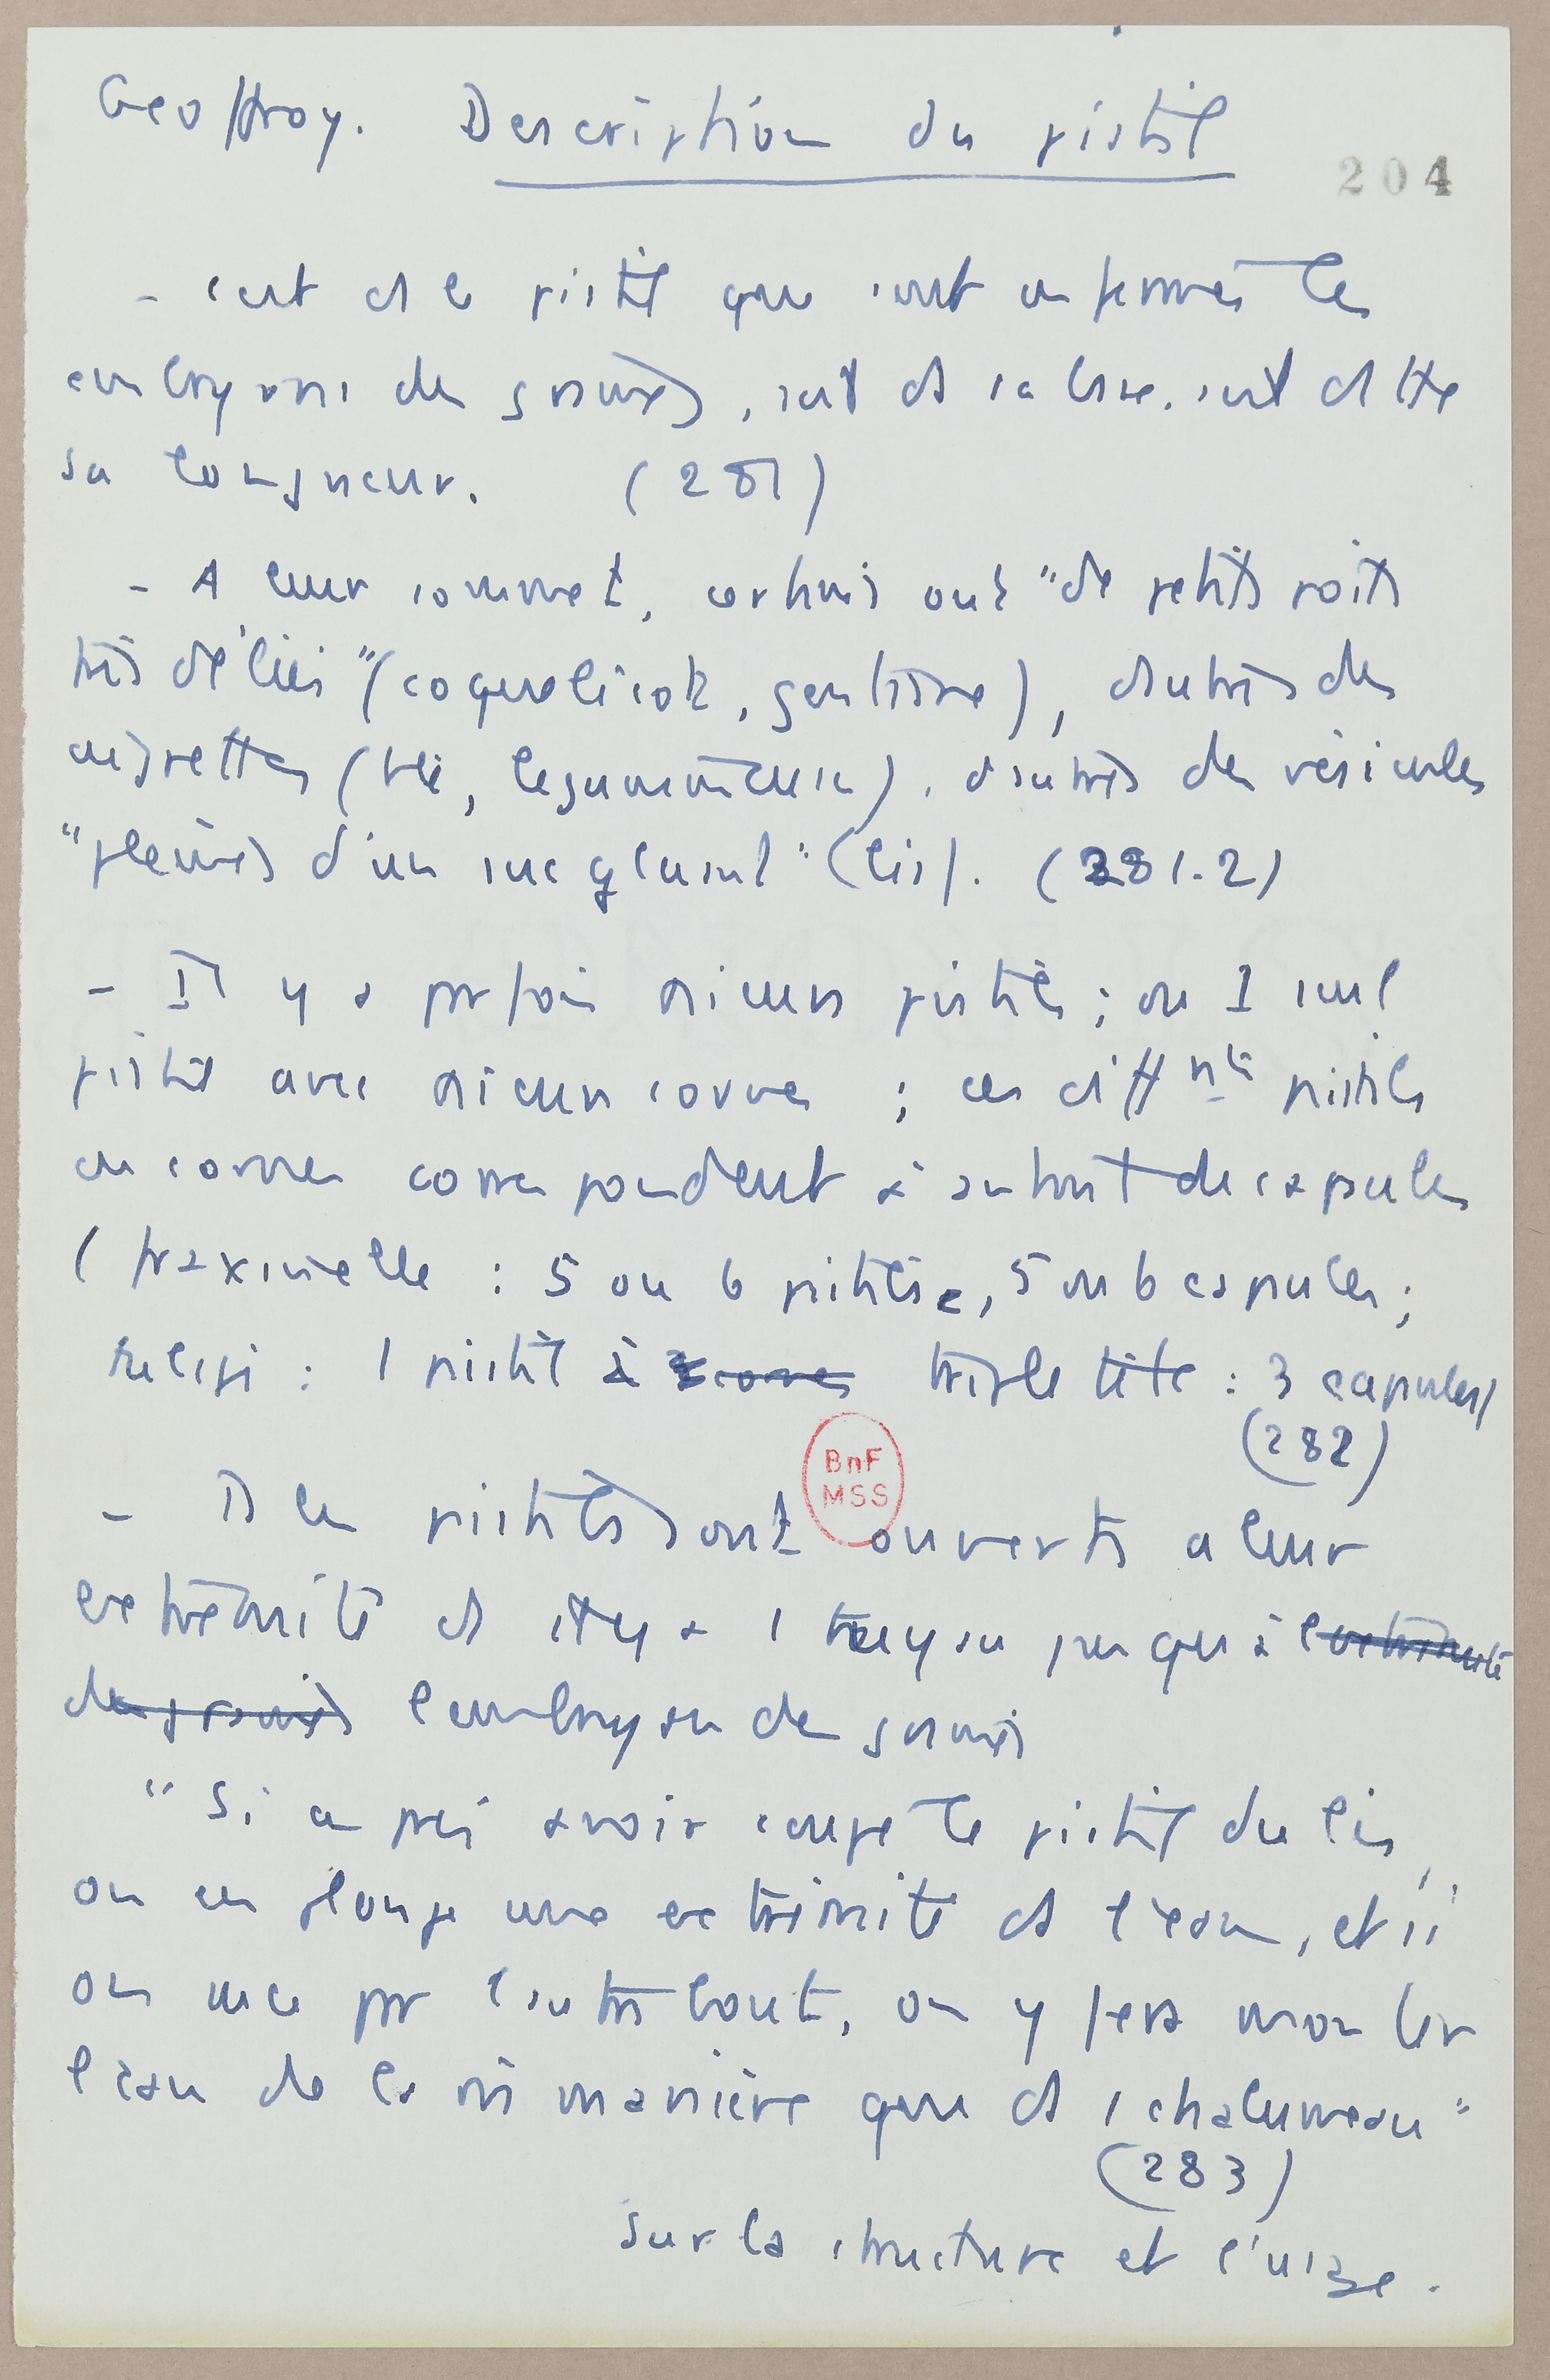 Geoffroy. Description du pistil
204
- c'est ds le pistil que sont enfermés les
embryons des graines, soit ds sa base, soit ds tte
sa longueur. (281)
- A leur sommet, certains ont "de petits poils
très déliés" (coquelicot, gentiane), d'autres des
aigrettes (blé, légumineuses), d'autres des vésicules
"pleines d'un suc gluant" (lis). (281-2)
- Il y a parfois plusieurs pistils ; ou 1 seul
pistil avec plusieurs cornes ; ces diffnts pistils
ou cornes correspondent à autant de capsules
(fraxinelle : 5 ou 6 pistils, 5 ou 6 capsules ;
tulipe : 1 pistil à 3 cornes triple tête : 3 capsules)
(282)
BnF
MSS
- Ts les pistils sont ouverts à leur
extrémité et il y a 1 tuyau jusqu'à l'extrémité
des graines l'embryon des graines
"Si après avoir coupé le pistil du lis,
on en plonge une extrémité ds l'eau, et si
on suce par l'autre bout, on y fera monter
l'eau de la m manière que ds 1 chalumeau"
(283)
Sur la structure et l'usage.